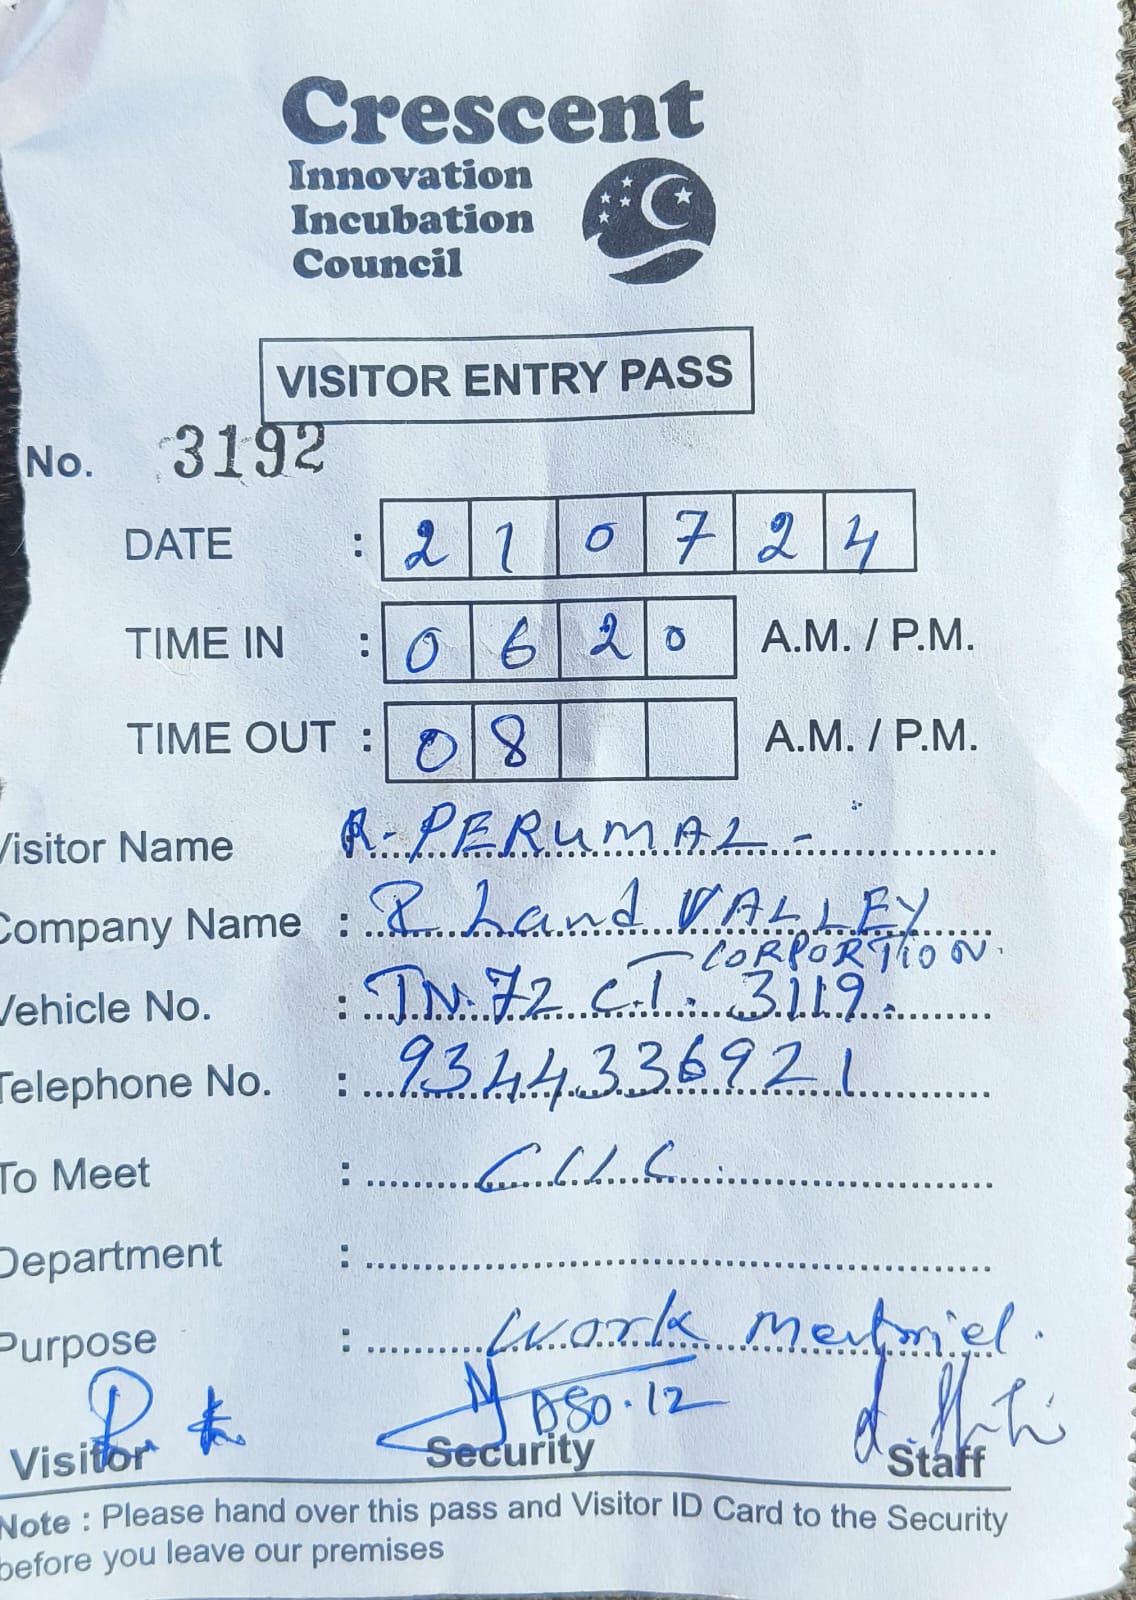 Crescent
Innovation
Incubation
Council
VISITOR ENTRY PASS
No. 3192
DATE : 2 1 0 7 2 4
TIME IN : 0 6 2 0 A.M. / P.M.
TIME OUT : 0 8 A.M. / P.M.
Visitor Name R-PERUMAL -
Company Name : R Land VALLEY
CORPORTION
Vehicle No. : TN.72 C.T. 3119.
Telephone No. : 9344336921
To Meet : CIIC
Department :
Purpose : Work Meteriel.
ASO.12
Visitor Security Staff
Note : Please hand over this pass and Visitor ID Card to the Security
before you leave our premises